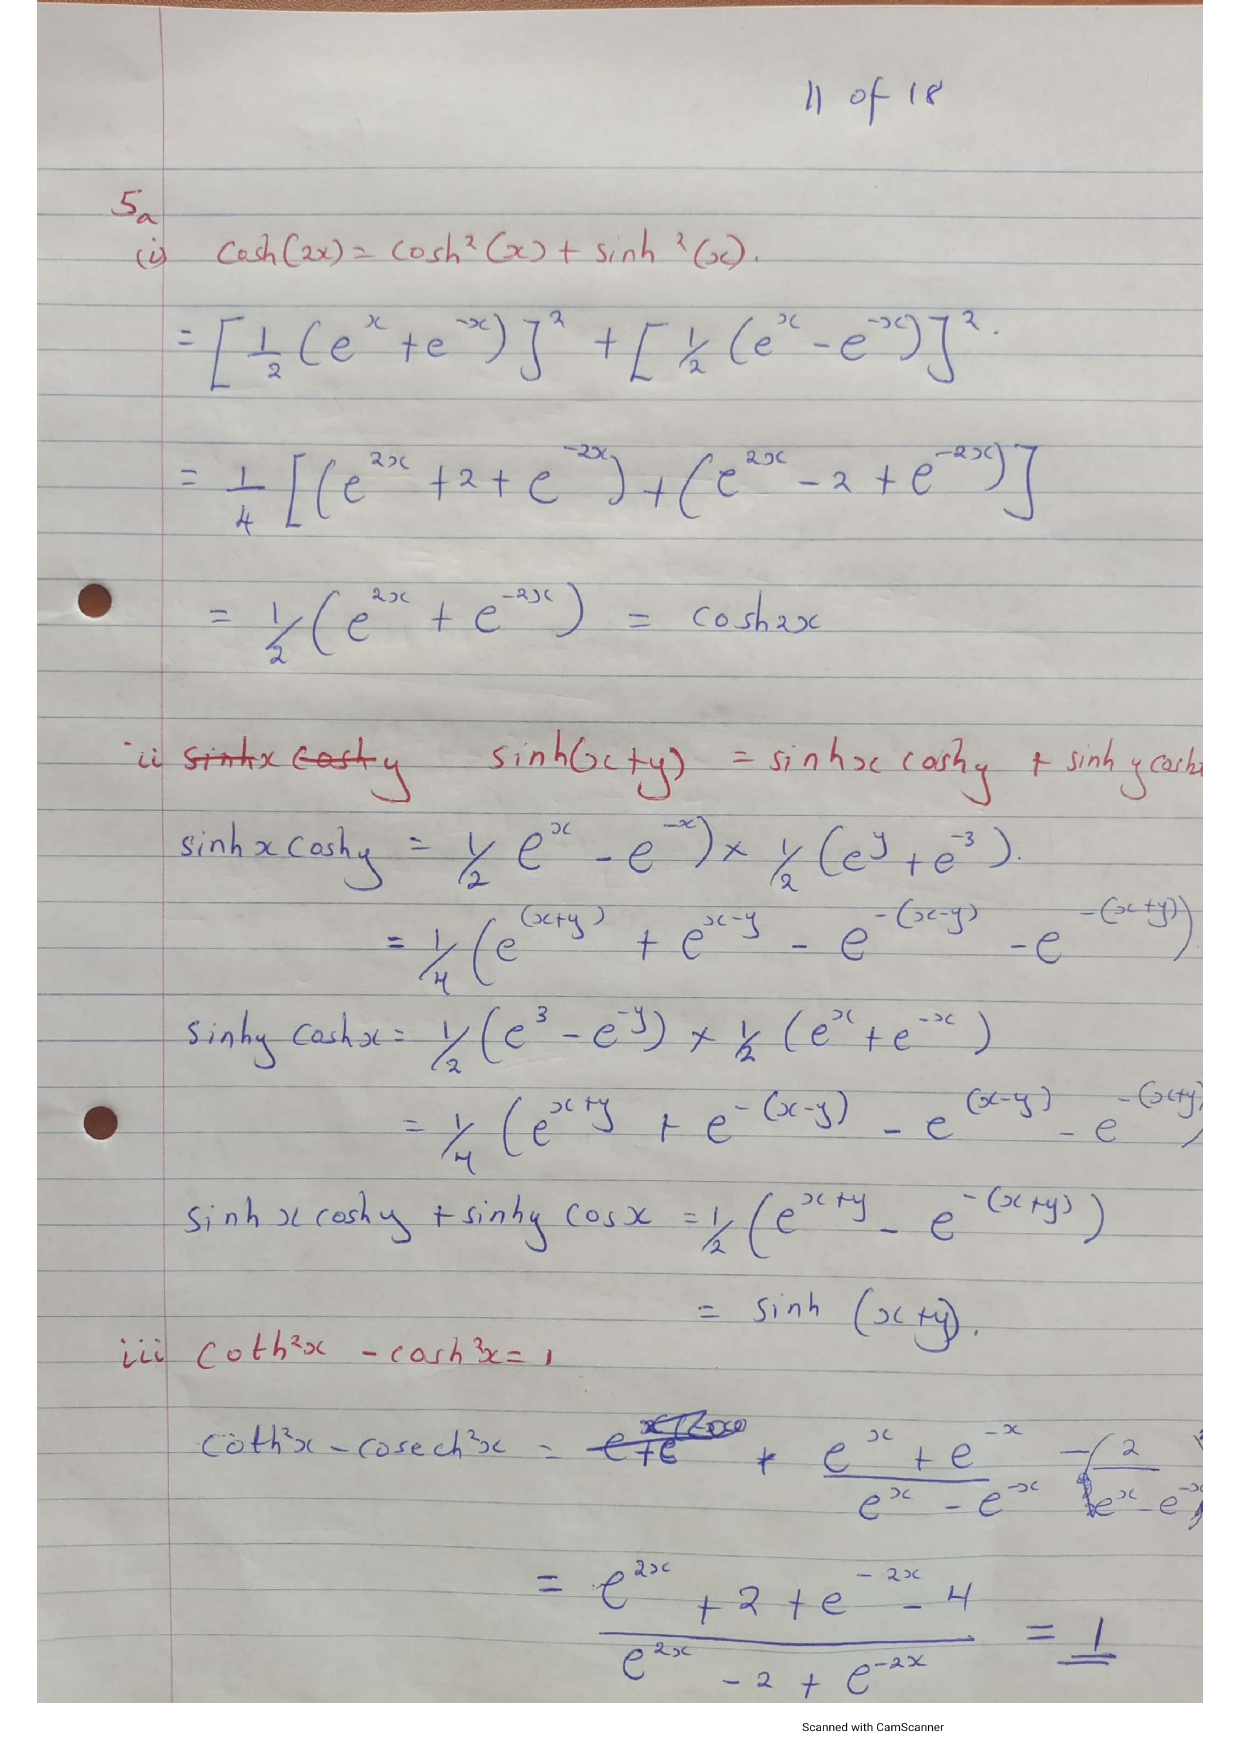 11 of 18
5a
(i) Cosh(2x) = cosh²(x) + sinh²(x).
= [1/2 (e^x + e^-x)]² + [1/2 (e^x - e^-x)]².
= 1/4 [(e^2x + 2 + e^-2x) + (e^2x - 2 + e^-2x)]
= 1/2 (e^2x + e^-2x) = cosh2x
ii sinhx coshy sinh(x+y) = sinhx coshy + sinh y coshx
sinhx coshy = 1/2 e^x - e^-x) × 1/2 (e^y + e^-3).
= 1/4 (e^(x+y) + e^x-y - e^-(x-y) - e^-(x+y))
sinhy coshx = 1/2 (e^3 - e^-y) × 1/2 (e^x + e^-x)
= 1/4 (e^x+y + e^-(x-y) - e^(x-y) - e^-(x+y)
sinh x coshy + sinhy cosx = 1/2 (e^x+y - e^-(x+y))
= sinh (x+y).
iii coth²x - cosh²x = 1
coth²x - cosech²x = + (e^x + e^-x)/(e^x - e^-x) - (2/(e^x - e^-x)
= (e^2x + 2 + e^-2x - 4)/(e^2x - 2 + e^-2x) = 1
Scanned with CamScanner